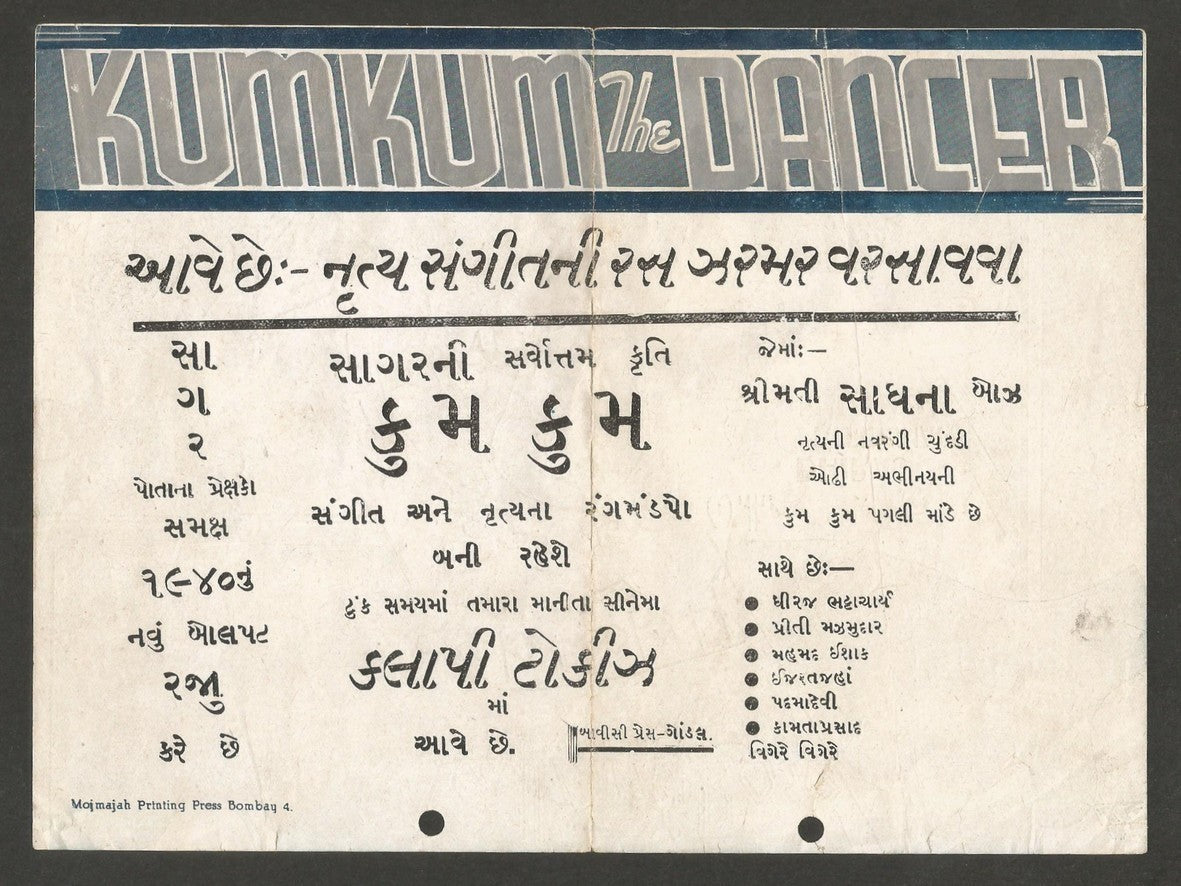 KUMKUM The DANCER
આવે છેઃ- નૃત્ય સંગીતની રસ ઝરમર વરસાવવા
સા
ગ
ર
પોતાના પ્રેક્ષકો
સમક્ષ
૧૯૪૦નું
નવું બોલપટ
રજુ
કરે છે
સાગરની સર્વોત્તમ કૃતિ
કુ મ કુ મ
સંગીત અને નૃત્યના રંગમંડપો
બની રહેશે
ટુંક સમયમાં તમારા માનીતા સીનેમા
કલાપી ટોકીઝ
માં
આવે છે.
બાવીસી પ્રેસ-ગોંડલ.
જેમાંઃ—
શ્રીમતી સાધના બોઝ
નૃત્યની નવરંગી ચુંદડી
ઓઢી અભીનયની
કુમ કુમ પગલી માંડે છે
સાથે છેઃ—
● ધીરજ ભટ્ટાચાર્ય
● પ્રીતી મઝમુદાર
● મહમદ ઈશાક
● ઈજરતજહાં
● પદમાદેવી
● કામતાપ્રસાદ
વિગેરે વિગેરે
Mojmajah Printing Press Bombay 4.